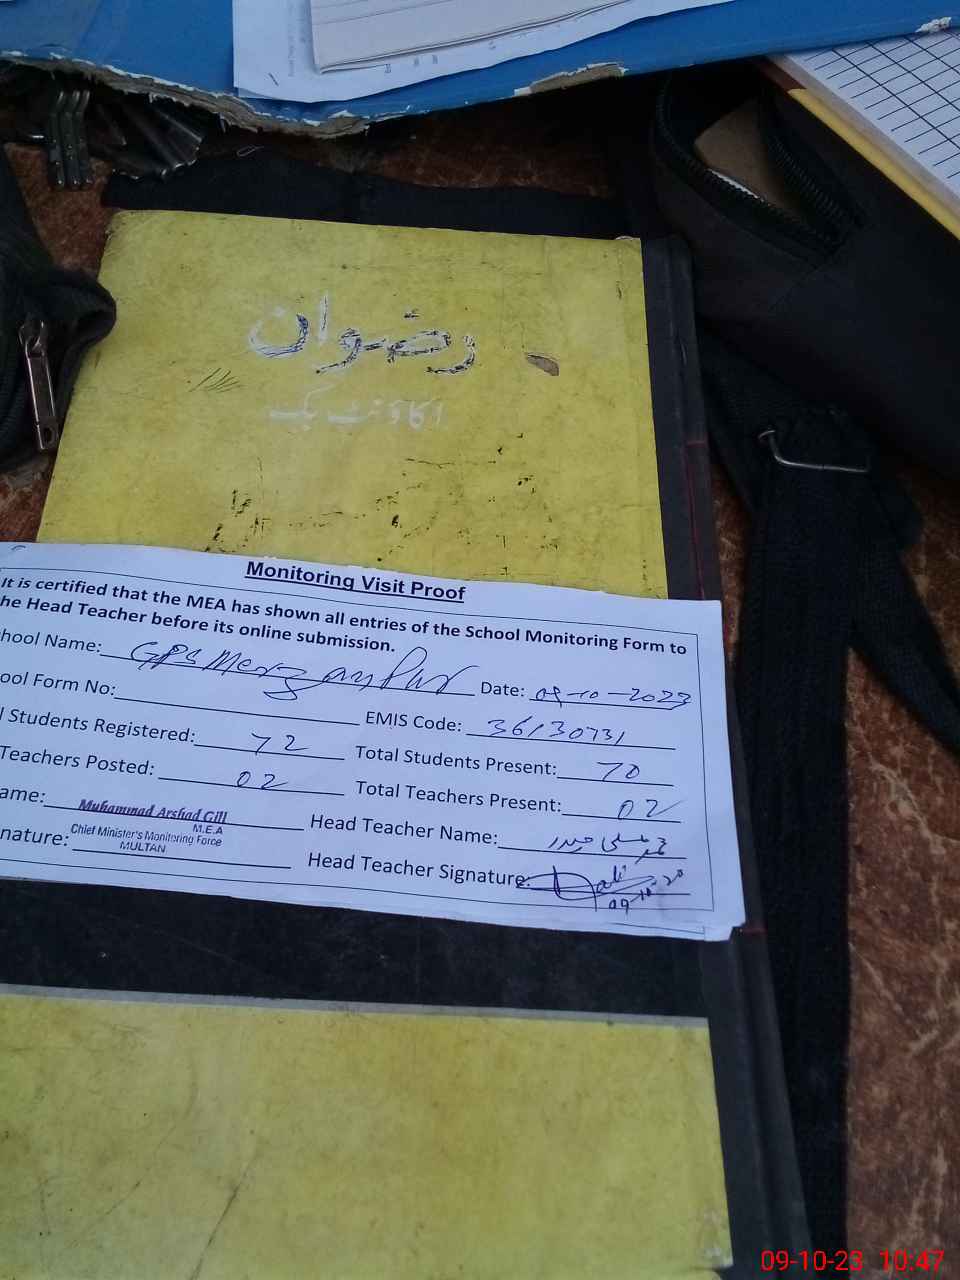 رضوان
اکاؤنٹ بک
Monitoring Visit Proof
It is certified that the MEA has shown all entries of the School Monitoring Form to
he Head Teacher before its online submission.
chool Name: GPS Date: 09-10-2023
ool Form No: EMIS Code: 36130731
l Students Registered: 72 Total Students Present: 70
Teachers Posted: 02 Total Teachers Present: 02
ame: Muhammad Arshad Gill Head Teacher Name:
M.E.A
nature: Chief Minister's Monitoring Force Head Teacher Signature:
MULTAN
09-10-20
09-10-23 10:47